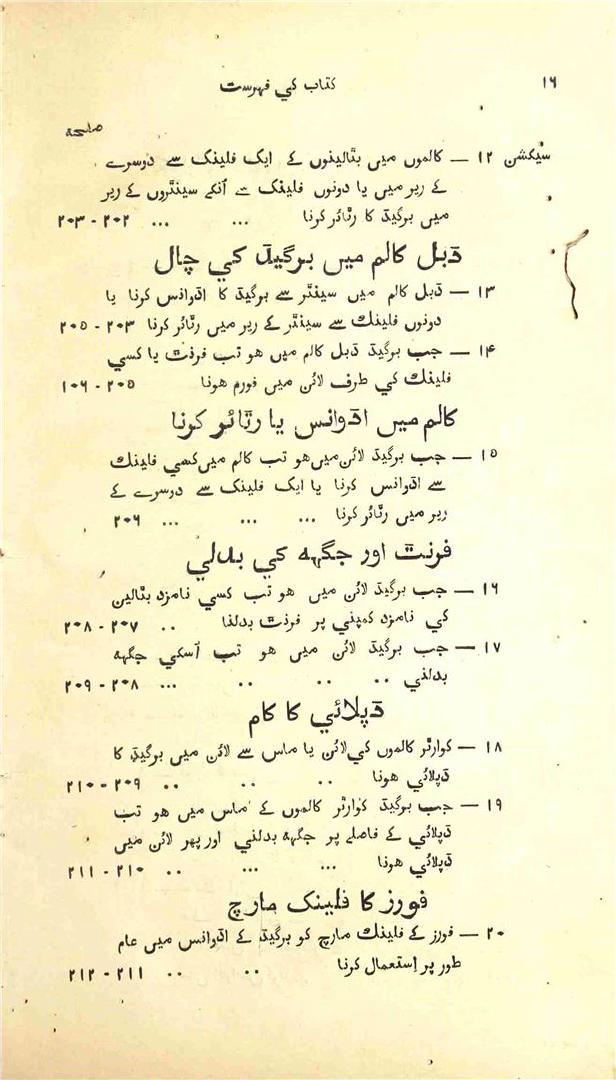 ١٦ کتاب کي فہرست
صفحه
سیکشن ١٢ — کالموں میں بٹالینوں کے ایک فلینک سے دوسرے
کے ریر میں یا دونوں فلینک سے اُنکے سینٹروں کے ریر
میں برگیڈ کا رٹائر کرنا ... ... ٢٠٢ - ٢٠٣
ڈبل کالم میں برگیڈ کي چال
١٣ — ڈبل کالم میں سینٹر سے برگیڈ کا اڈوانس کرنا یا
دونوں فلینک سے سینٹر کے ریر میں رٹائر کرنا ٢٠٣ - ٢٠٥
١۴ — جب برگیڈ ڈبل کالم میں هو تب فرنٹ یا کسي
فلینک کي طرف لائن میں فورم هونا ٢٠٥ - ١٠٦
کالم میں اڈوانس یا رٹائر کرنا
١٥ — جب برگیڈ لائن میں هو تب کالم میں کسي فلینک
سے اڈوانس کرنا یا ایک فلینک سے دوسرے کے
ریر میں رٹائر کرنا ... ... ... ٢٠٦
فرنٹ اور جگہه کي بدلي
١٦ — جب برگیڈ لائن میں هو تب کسي نامزد بٹالین
کي نامزد کمپني پر فرنٹ بدلنا .. ٢٠٧ - ٢٠٨
١٧ — جب برگیڈ لائن میں هو تب اُسکي جگہه
بدلني .. .. .. ... ٢٠٨ - ٢٠٩
ڈپلائي کا کام
١٨ — کوارٹر کالموں کي لائن یا ماس سے لائن میں برگیڈ کا
ڈپلائي هونا .. .. .. ٢٠٩ - ٢١٠
١٩ — جب برگیڈ کوارٹر کالموں کے ماس میں هو تب
ڈپلائي کے فاصلے پر جگہه بدلني اور پھر لائن میں
ڈپلائي هونا ... ... .. ٢١٠ - ٢١١
فورز کا فلینک مارچ
٢٠ — فورز کے فلینک مارچ کو برگیڈ کے اڈوانس میں عام
طور پر اِستعمال کرنا .. .. ٢١١ - ٢١٢